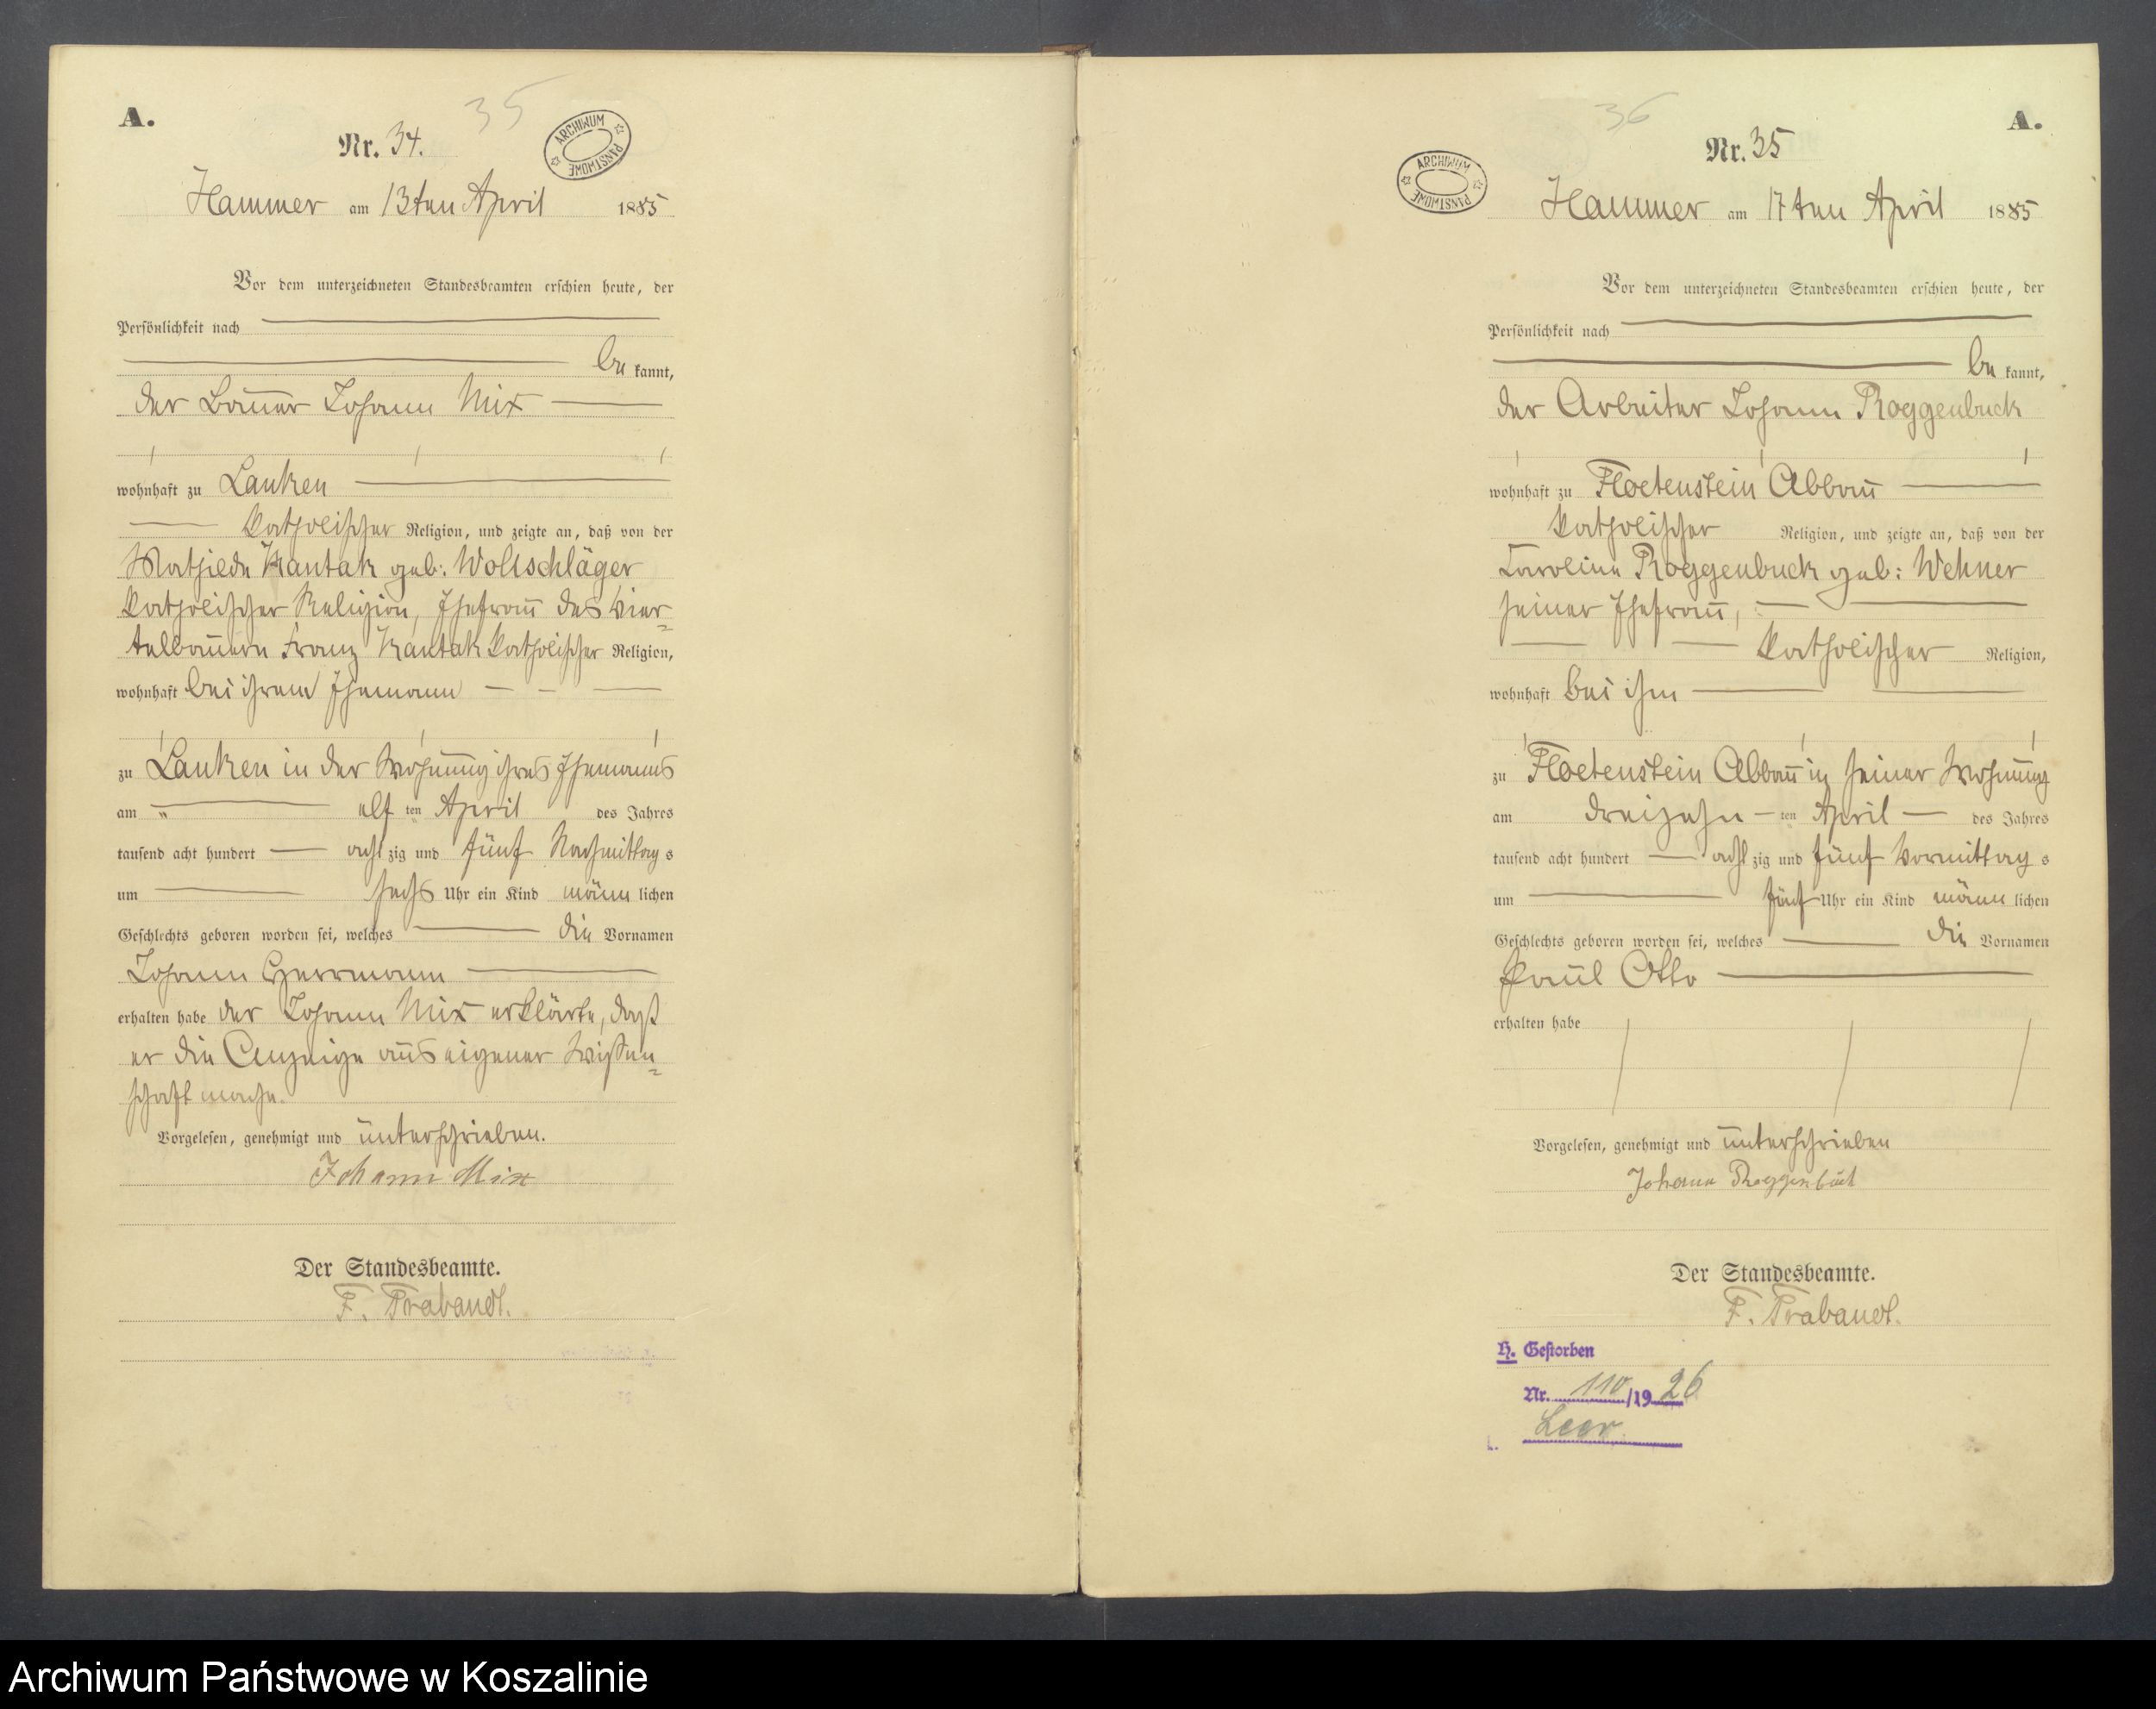 A.
35
Nr. 34.
ARCHIWUM PAŃSTWOWE
Hammer am 13ten April 1885
Vor dem unterzeichneten Standesbeamten erschien heute, der
Persönlichkeit nach
be kannt,
der Bauer Johann Mix
wohnhaft zu Lanken
katholischer Religion, und zeigte an, daß von der
Mathilde Kantak geb: Wollschläger
katholischer Religion, Ehefrau des Vier=
telbauern Franz Kantak katholischer Religion,
wohnhaft bei ihrem Ehemann
zu Lanken in der Wohnung ihres Ehemanns
am elf ten April des Jahres
tausend acht hundert acht zig und fünf Nachmittag s
um sechs Uhr ein Kind männ lichen
Geschlechts geboren worden sei, welches die Vornamen
Johann Herrmann
erhalten habe der Johann Mix erklärte, daß
er die Anzeige aus eigener Wissen=
schaft mache.
Vorgelesen, genehmigt und unterschrieben.
Johann Mix
Der Standesbeamte.
F. Trabandt.
36
A.
Nr. 35
ARCHIWUM PAŃSTWOWE
Hammer am 17ten April 1885
Vor dem unterzeichneten Standesbeamten erschien heute, der
Persönlichkeit nach
be kannt,
der Arbeiter Johann Roggenbuck
wohnhaft zu Floetenstein Abbau
katholischer Religion, und zeigte an, daß von der
Caroline Roggenbuck geb: Wehner
seiner Ehefrau,
katholischer Religion,
wohnhaft bei ihm
zu Floetenstein Abbau in seiner Wohnung
am dreizehn ten April des Jahres
tausend acht hundert acht zig und fünf Vormittag s
um fünf Uhr ein Kind männ lichen
Geschlechts geboren worden sei, welches die Vornamen
Paul Otto
erhalten habe
Vorgelesen, genehmigt und unterschrieben
Johann Roggenbuck
Der Standesbeamte.
F. Trabandt.
H. Gestorben
Nr. 110/1926
Leer
Archiwum Państwowe w Koszalinie